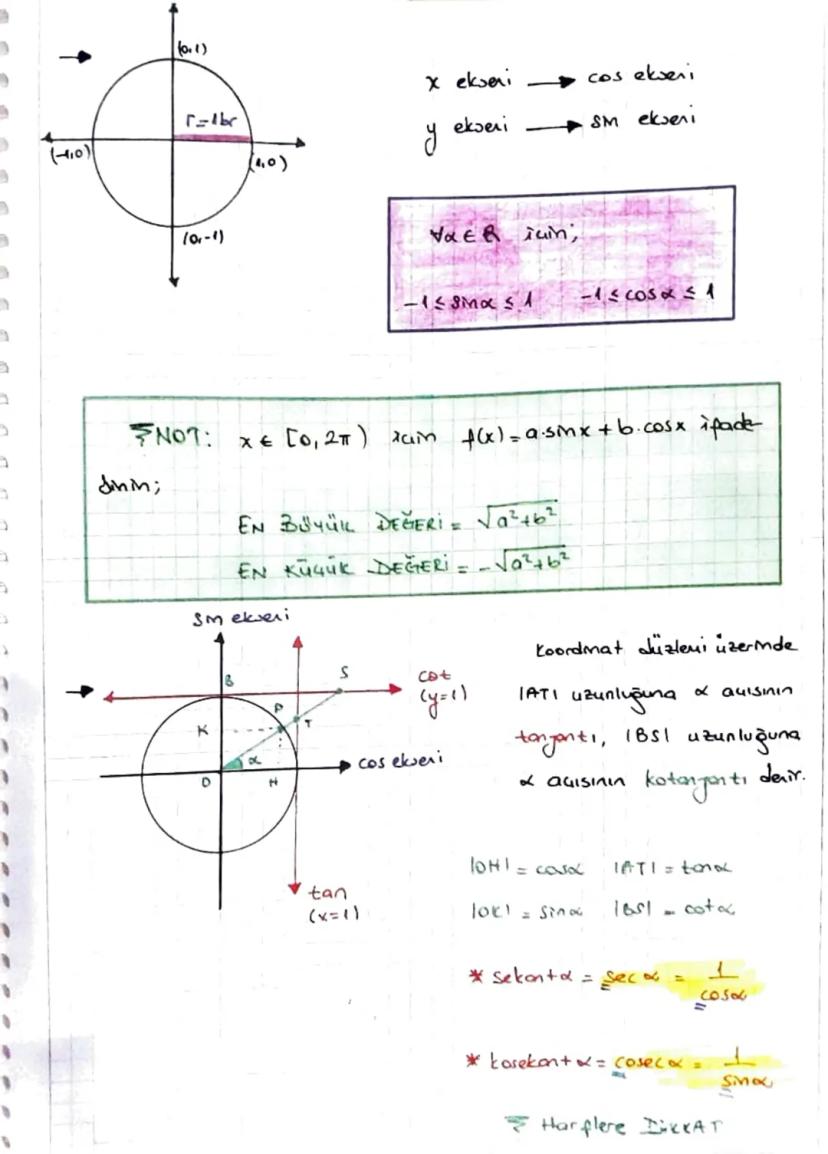 (0,1)
r=1br
(-1,0)
(1,0)
(0,-1)
x ekseni → cos ekseni
y ekseni → sin ekseni
∀α ∈ R için;
-1 ≤ sinα ≤ 1 -1 ≤ cosα ≤ 1
NOT: x ∈ [0, 2π) için f(x) = a·sinx + b·cosx ifade-
sinin;
EN BÜYÜK DEĞERİ = √a²+b²
EN KÜÇÜK DEĞERİ = -√a²+b²
sin ekseni
B
S
cot
(y=1)
P
T
K
α
cos ekseni
O
H
tan
(x=1)
Koordinat düzlemi üzerinde
|AT| uzunluğuna α açısının
tanjantı, |BS| uzunluğuna
α açısının kotanjantı denir.
|OH| = cosα |AT| = tanα
|OK| = sinα |BS| = cotα
* sekantα = secα = 1/cosα
* kosekantα = cosecα = 1/sinα
Harflere DİKKAT